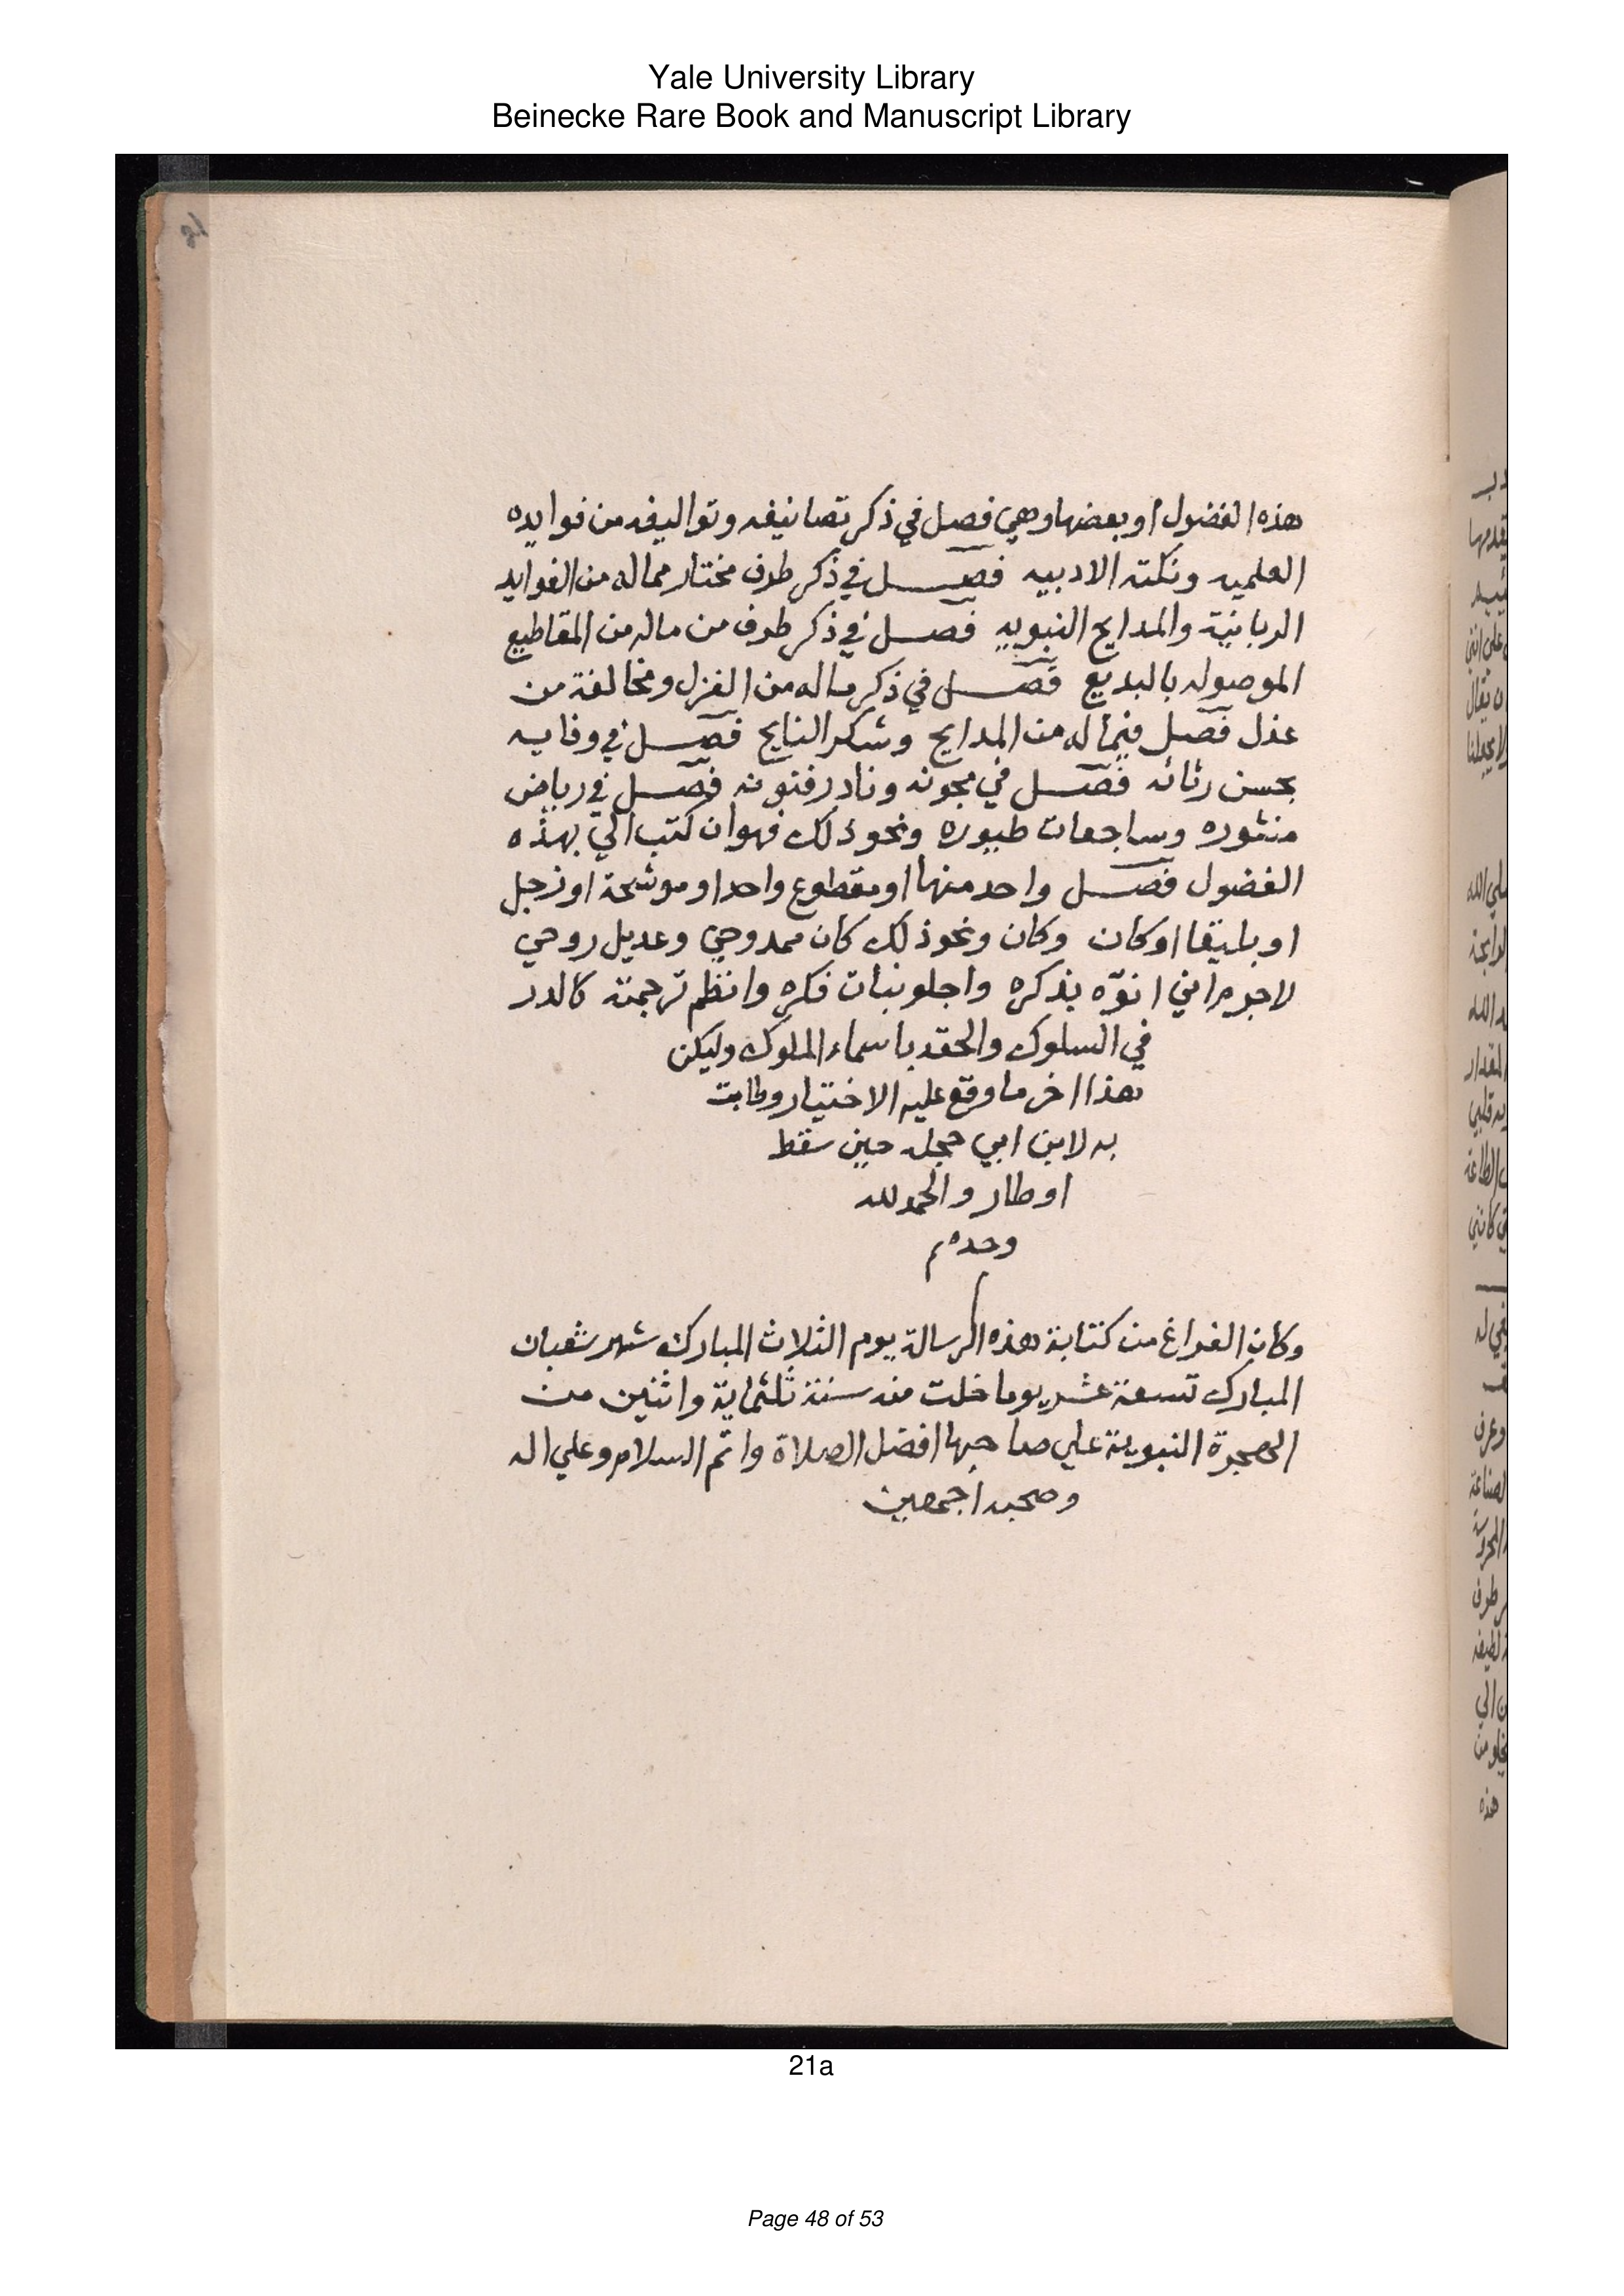 Yale University Library
Beinecke Rare Book and Manuscript Library
21
هذه الفضول او بعضها وهي فصل في ذكر تصانيفه وتواليفه من فوايده
العلميه ونكته الادبيه فصل في ذكر طرف مختار مماله من الفوايد
الربانية والمدايح النبويه فصل في ذكر طرف من ماله من المقاطيع
الموصوله بالبديع فصل في ذكر ماله من الغزل ومخالفة من
عذل فصل فيما له من المدايح وشكر النايح فصل في وفايه
بحسن رثائه فصل في مجونه ونادر فنونه فصل في رياض
منثوره وساجعات طيوره ونحو ذلك فهو ان كتب الي بهذه
الفضول فصل واحد منها او مقطوع واحد او موشحة او زجل
او بليقا او كان وكان ونحو ذلك كان ممدوحي وعديل روحي
لاجرم انني انوّه بذكره واجلو بنات فكره وانظم ترجمته كالدر
في السلوك والحقه باسماء الملوك وليكن
هذا اخر ما وقع عليه الاختيار وطابت
به لابن ابي حجله حين سقط
اوطار والحمد لله
وحده م
وكان الفراغ من كتابة هذه الرسالة يوم الثلاث المبارك شهر شعبان
المبارك تسعة عشر يوما خلت منه سنة ثلثماية واثنين من
الهجرة النبوية علي صاحبها افضل الصلاة واتم السلام وعلي اله
وصحبه اجمعين
21a
Page 48 of 53